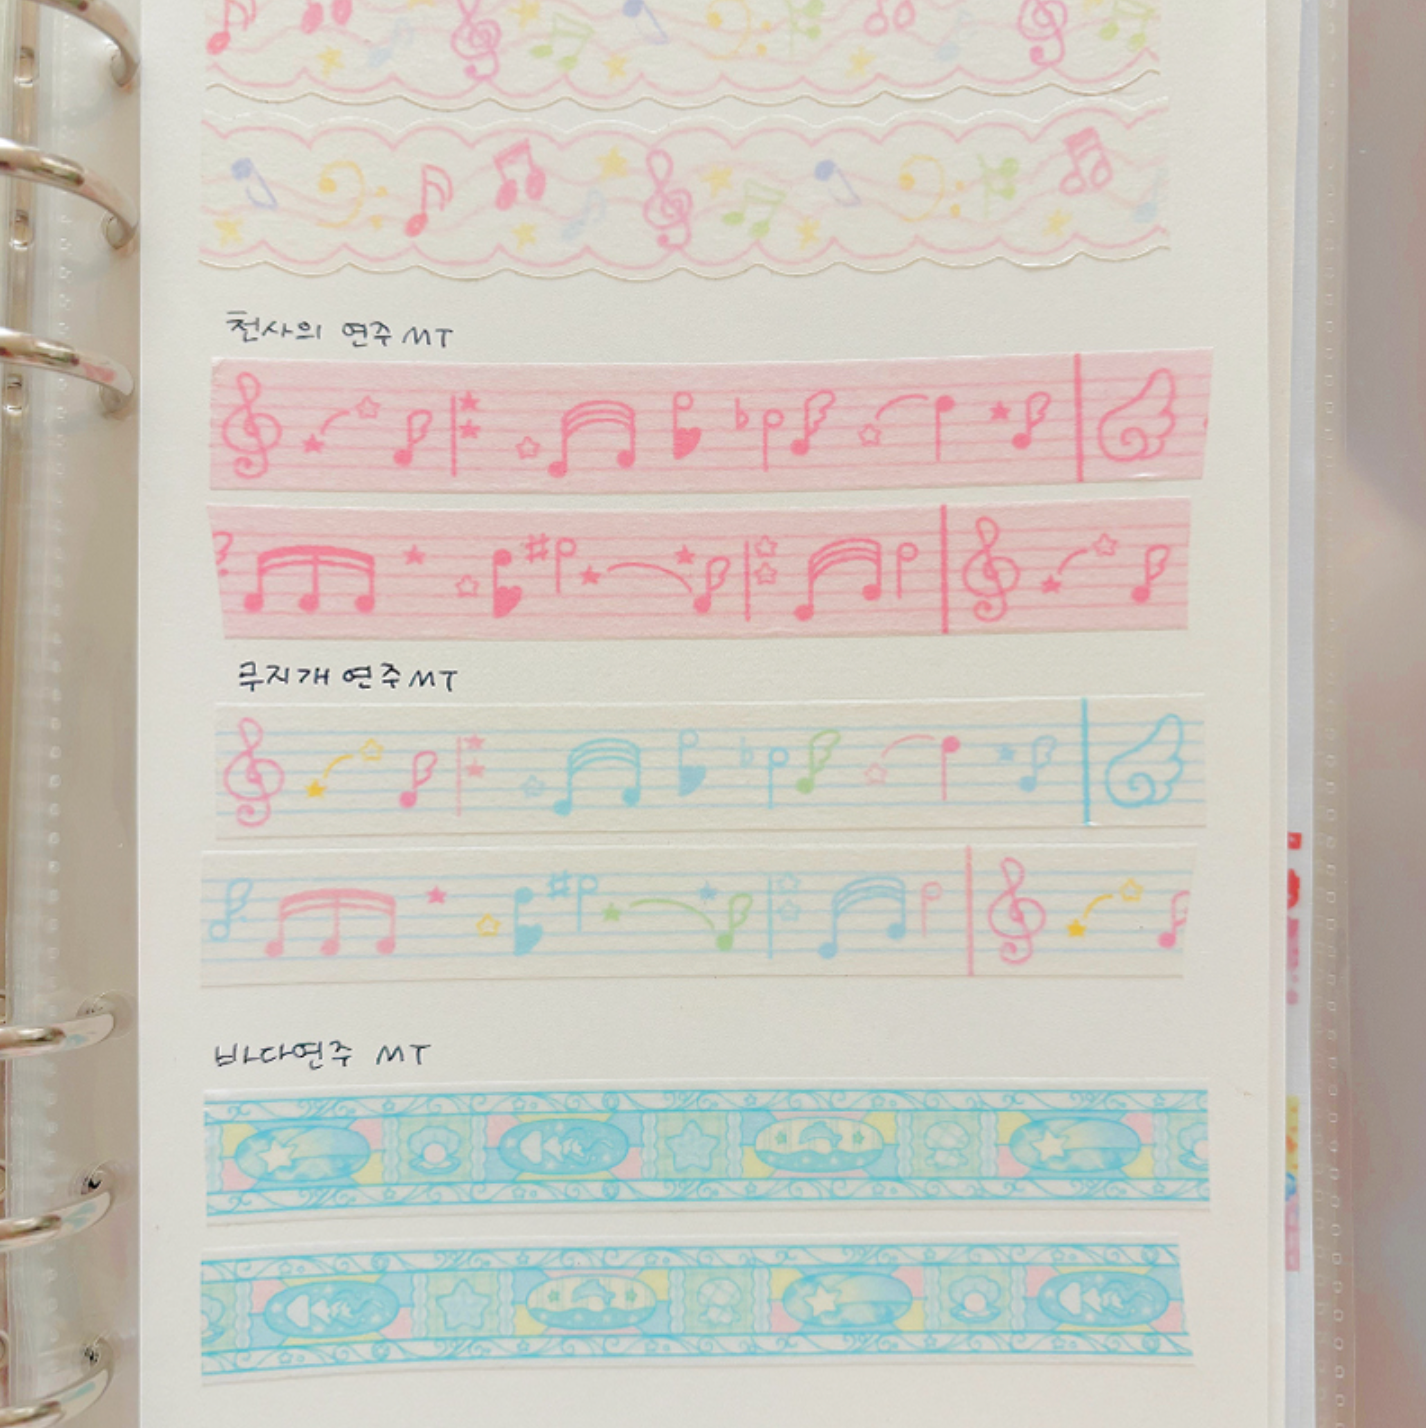 천사의 연주 MT
무지개 연주 MT
바다연주 MT